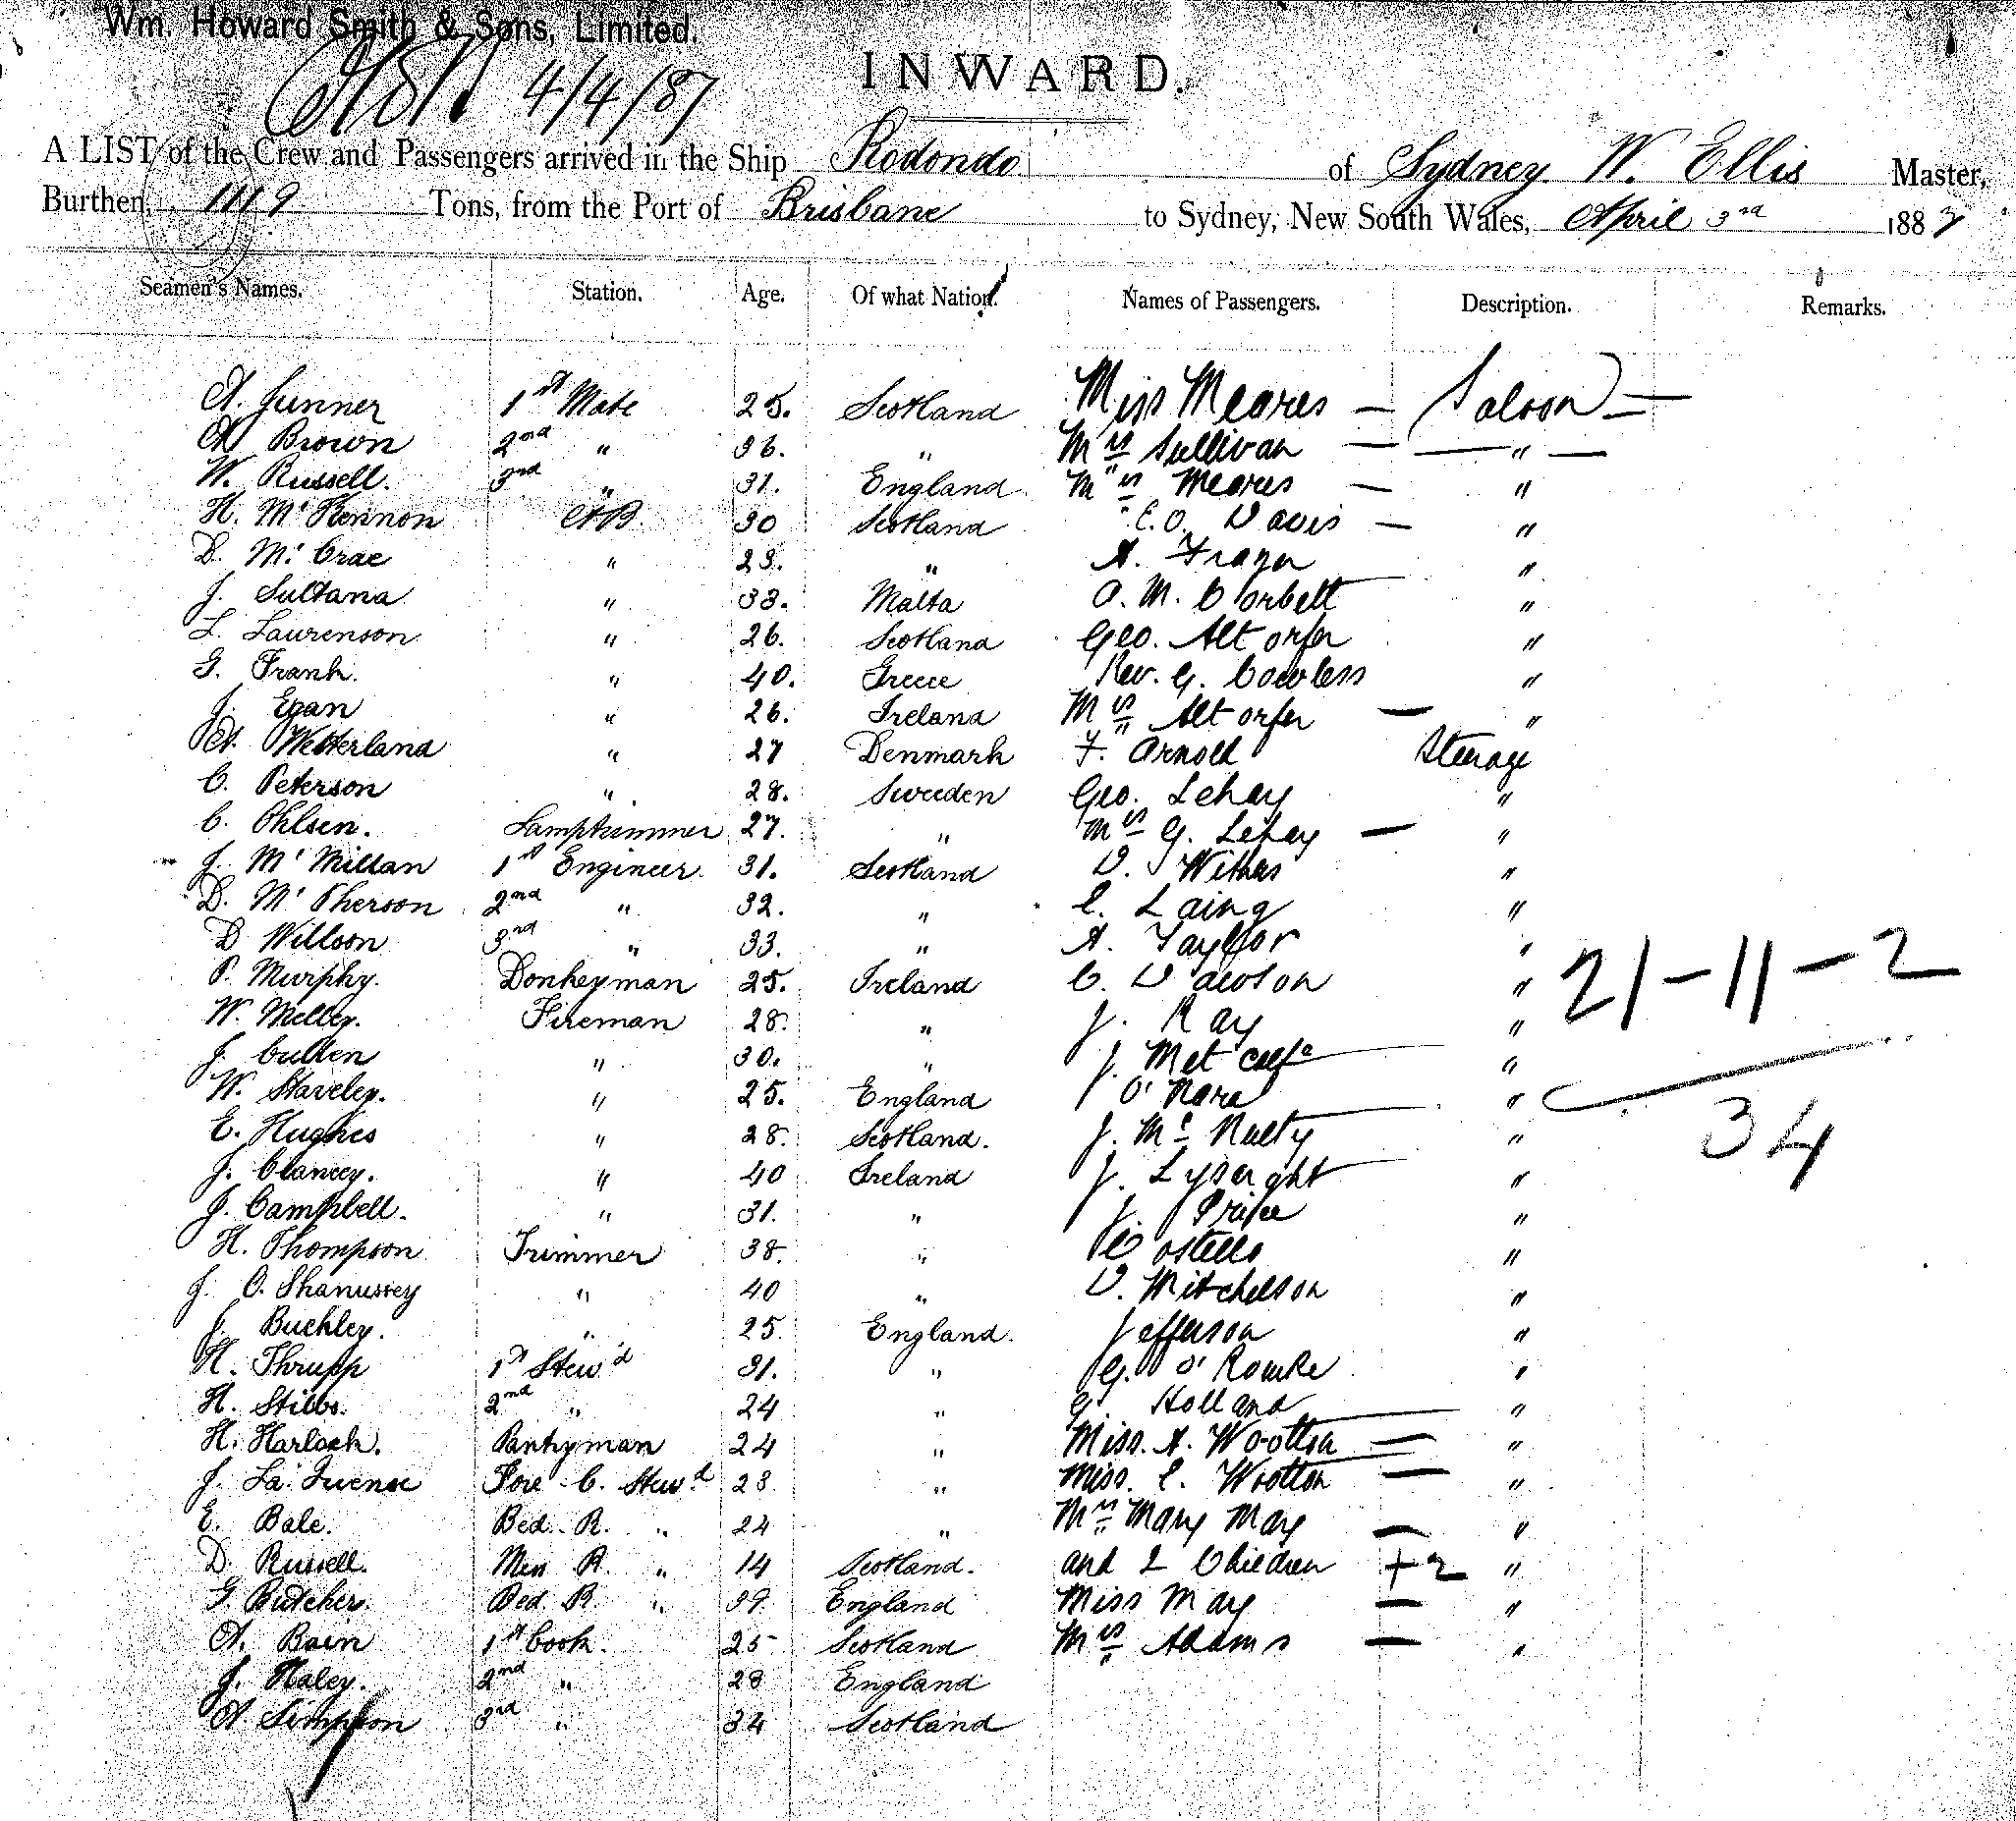 Wm. Howard Smith & Sons, Limited.
4/4/87
INWARD.
A LIST of the Crew and Passengers arrived in the Ship Rodondo of Sydney W. Ellis Master,
Burthen, 1119 Tons, from the Port of Brisbane to Sydney, New South Wales, April 3rd 1887
Seamen's Names. Station. Age. Of what Nation. Names of Passengers. Description. Remarks.
A. Junner 1st Mate 25. Scotland Miss Meares — Saloon —
A Brown 2nd " 36. " Mrs Sullivan — — " —
W. Russell. 3rd " 31. England Mrs Meares — "
H. McKennon AB 30 Scotland E.O. Davis — "
D. McCrae " 23. " A. Frazer "
J. Sultana " 33. Malta O. M. Corbett "
L. Laurenson " 26. Scotland Geo. Altorfer "
G. Frank. " 40. Greece Rev. G. Cowless "
J. Egan " 26. Ireland Mrs Altorfer — "
A. Wetterland " 27 Denmark F. Arnold Steerage
C. Peterson " 28. Sweeden Geo. Lehay "
C. Ohlsen. Lamptrimmer 27. " Mrs G. Lehay — "
J. McMillan 1st Engineer. 31. Scotland D. Withers "
D. McPherson 2nd " 32. " C. Laing "
D Willson 3rd " 33. " A. Taylor "
P. Murphy. Donkeyman 25. Ireland C. Dawson "
21-11-2
W. Melley. Fireman 28. " J. Ray "
J. Cullen " 30. " J. Metcalfe "
W. Staveley. " 25. England O'Mara "
34
E. Hughes " 28. Scotland. J. McNulty "
J. Clancey. " 40 Ireland J. Lysaght "
J. Campbell. " 31. " J. Price "
H. Thompson Trimmer 38. " Costello "
J. O. Shanussey " 40 " D. Mitchelson "
J. Buckley. " 25. England. Jefferson "
H. Thrupp 1st Stewd 31. " G. O'Rourke "
H. Stibbs. 2nd " 24 " G. Holland "
H. Harlock. Pantryman 24 " Miss. A. Wootton — "
J. La Fore C. Stewd 23 " Miss. C. Wootton — "
E. Bale. Bed. R. " 24 " Mrs Mary May — "
D. Russell. Mess R. " 14 Scotland. and 2 Children +2 "
G. Butcher. Bed. R. " 39 England Miss May — "
A. Bain 1st Cook. 25 Scotland Mrs Adams — "
J. Haley. 2nd " 28 England
A Simpson 3rd " 34 Scotland